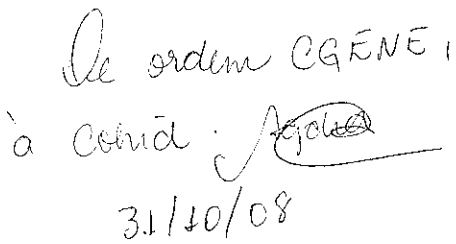 De ordem CGENE,
à Cohid.
31/10/08